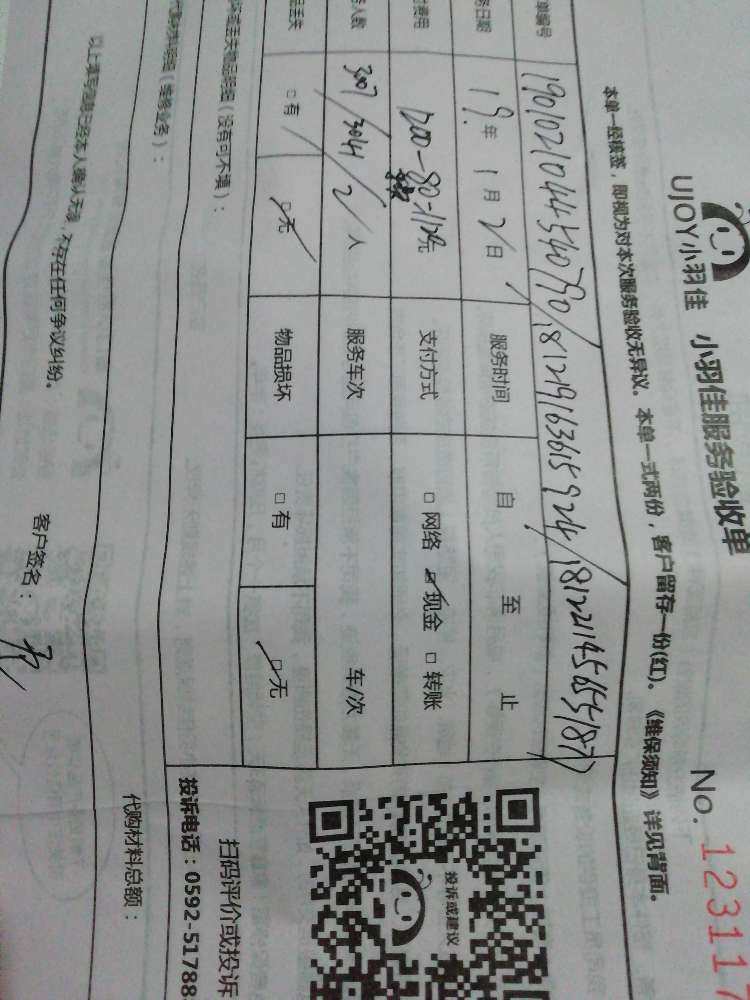 UJOY小羽佳 小羽佳服务验收单
No. 123117
本单一经核签，即视为对本次服务验收无异议。本单一式两份，客户留存一份(红)。《维保须知》详见背面。
单编号
务日期 19.年1月2日 服务时间 自 至 止
付费用 1200-80=1120元 支付方式 □网络 ☑现金 □转账
务人数 2人 服务车次 车/次
品丢失 □有 ☑无 物品损坏 □有 ☑无
坏或丢失物品明细（没有可不填）：
投诉或建议
扫码评价或投诉
投诉电话：0592-51788
代购材料明细（维修业务）：
代购材料总额：
以上填写信息已经本人确认无误，不存在任何争议纠纷。
客户签名：